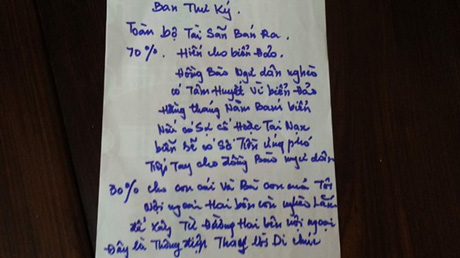 Ban Thư Ký
Toàn bộ Tài Sản Bán Ra.
70%. Hiến cho biển Đảo.
Đồng Bào Ngư dân nghèo
có Tâm Huyết Vì biển Đảo
Hằng tháng Năm Bám biển
Nếu có Sự cố Hoặc Tai Nạn
biển Sẽ có Số Tiền ứng phó
Tiếp Tay cho Đồng Bào ngư dân
30% cho con cái Và Bà con của Tôi
Nội ngoại Hai bên còn nghèo Lắm
Để Xây Từ Đường Hai bên nội ngoại
Đây là Thông Điệp Thay lời Di chúc